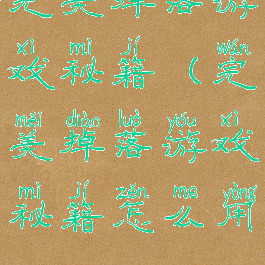 完美掉落游
xì mì jí wán
戏秘籍（完
měi diào luò yóu xì
美掉落游戏
mì jí zěn me yòng
秘籍怎么用